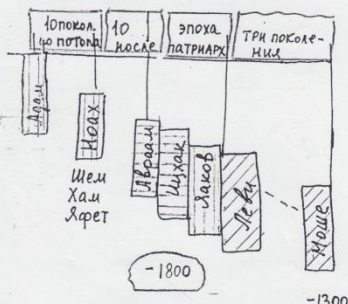 10 покол.
до потопа
10
после
эпоха
патриарх
три поколе-
ния
Адам
Ноах
Шем
Хам
Яфет
Авраам
Ицхак
Яаков
Леви
Моше
-1800
-1300